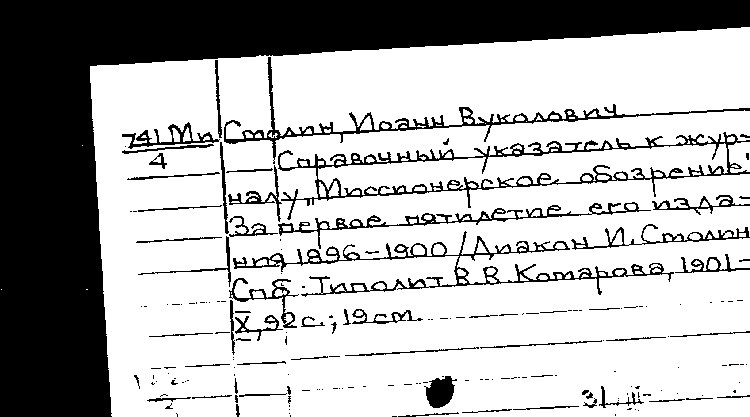 741 Ми Столин, Иоанн Вуколович
4 Справочный указатель к жур-
налу „Миссионерское обозрение"
За первое пятилетие его изда-
ния 1896-1900 / Диакон И. Столин
Спб: Типолит В.В. Комарова, 1901-
X, 92 с.; 19 см.
31 III